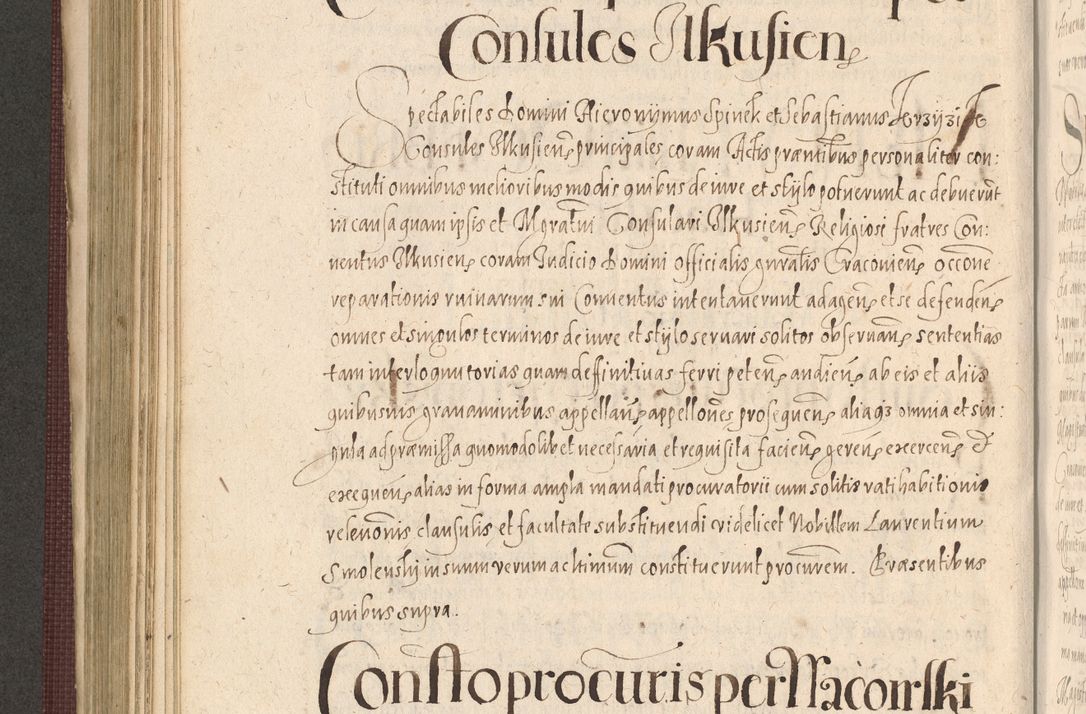 Consules Ilkusien̄
Spectabiles Domini Hieronymus Spinek et Sebastianus Jerzyzik
Consules Ilkusien̄ principales coram Actis præntibus personaliter con:
stituti omnibus melioribus modis quibus de iure et stylo potuerunt ac debuerūt
in causa quam ipsis et Mgratui Consulari Ilkusien̄ Religiosi fratres Con:
ventus Ilkusien̄ coram Iudicio Domini officialis gnralis Cracovien̄ occone
reparationis ruinarum sui Conventus intentaverunt ad agen̄ et se defenden̄
omnes et singulos terminos de iure et stylo servari solitos observan̄ sententias
tam interloqutorias quam deffinitivas ferri peten̄ audien̄ ab eis et aliis
quibusvis gravaminibus appellan̄ appellones prosequen̄ aliaq3 omnia et sin:
gula ad præmissa quomodolibet necessaria et requisita facien̄ geren̄ exercen̄ et
exequen̄ alias in forma ampla mandati procuratorii cum solitis ratihabitionis
relevonis clausulis et facultate substituendi videlicet Nobillem Laurentium
Smolenski in suum verum ac ltimum constituerunt procurem. Præsentibus
quibus supra.
Consto procuris per Naconski